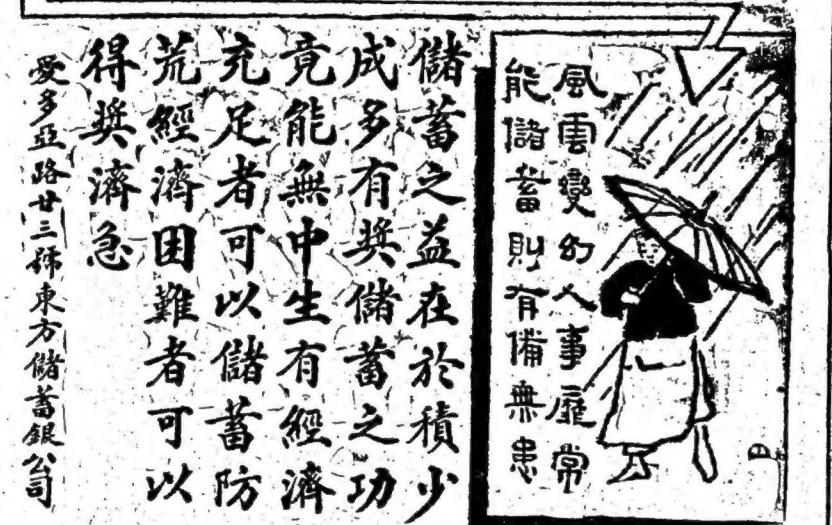 風雲變幻人事靡常
能儲蓄則有備無患
儲蓄之益在於積少
成多有奬儲蓄之功
竟能無中生有經濟
充足者可以儲蓄防
荒經濟困難者可以
得奬濟急
愛多亞路廿三號東方儲蓄銀公司